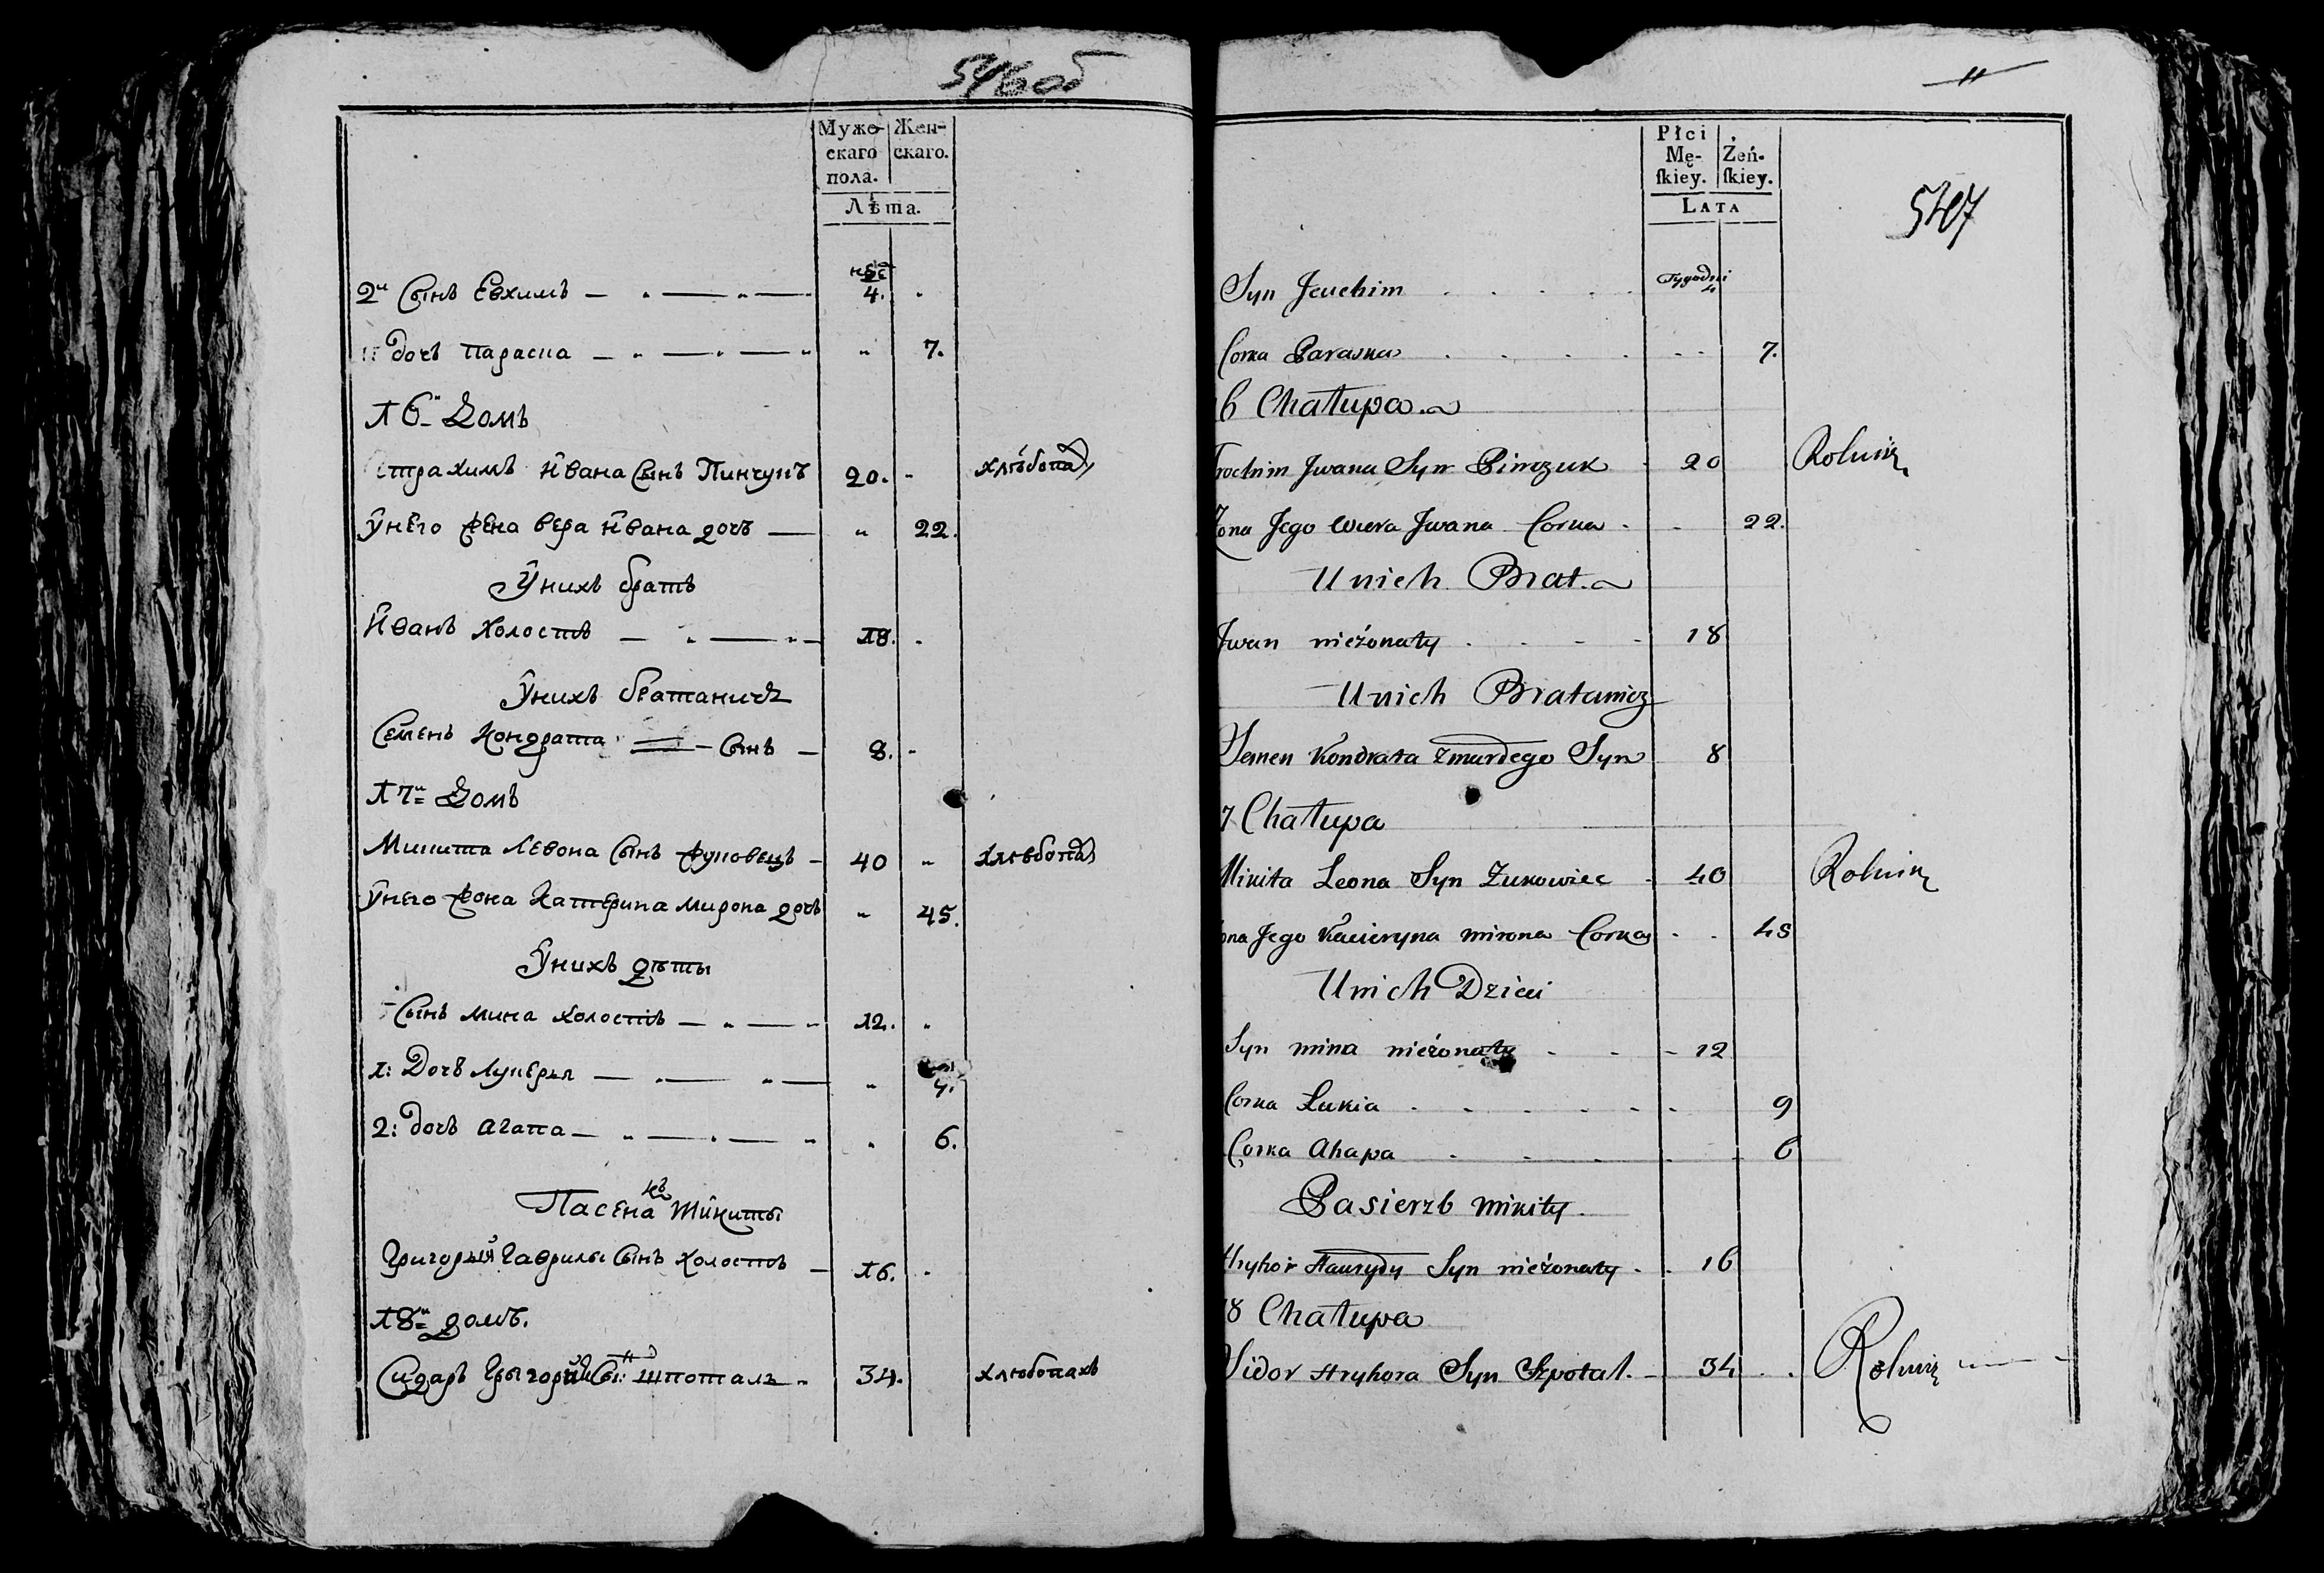 546 об
Муже- Жен-
скаго скаго.
пола.
Лѣта.
нед
2й Сынъ Евхимъ 4.
дочъ Параска 7.
16й Домъ
Трахимъ Ивана Сынъ Пинчукъ 20. хлѣбопа
Унего жена вера Ивана дочъ 22.
Унихъ братъ
Иванъ холостъ 18.
Унихъ братаничъ
Семенъ Кондрата Сынъ 8.
17й Домъ
Микита Левона Сынъ жуковецъ 40 хлебопа
Унего жона Катерина Мирона дочъ 45.
Унихъ дѣты
Сынъ мина холостъ 12.
1: Дочъ Лукеря
2: дочъ агапа 6.
Пасенкъ Микиты
Григорый Гаврилы Сынъ холостъ 16.
18й домъ.
Сидаръ Грыгорый Сы: шпоталъ 34. хлѣбопахъ
"
Płci
Mę- Żeń-
ſkiey. ſkiey.
LATA
547
Syn Jeuchim Tygodni 4
Corka Paraska 7.
6 Chałupa
Trochim Jwana Syn Pinczuk 20 Rolnik
Zona Jego Wiera Jwana Corka 22.
U nich Brat.
Jwan nieżonaty 18
U nich Bratanicz
Semen Kondrata Zmurdego Syn 8
7 Chałupa
Mikita Leona Syn Zukowiec 40 Rolnik
ona Jego Kacieryna mirona Corka 45
U nich Dzieci
Syn mina nieżonaty 12
Corka Łukia 9
Corka Ahapa 6
Pasierzb mikity.
Hryhor Hauryły Syn nieżonaty 16
18 Chałupa
Sidor Hryhora Syn Szpotal. 34 Rolnik